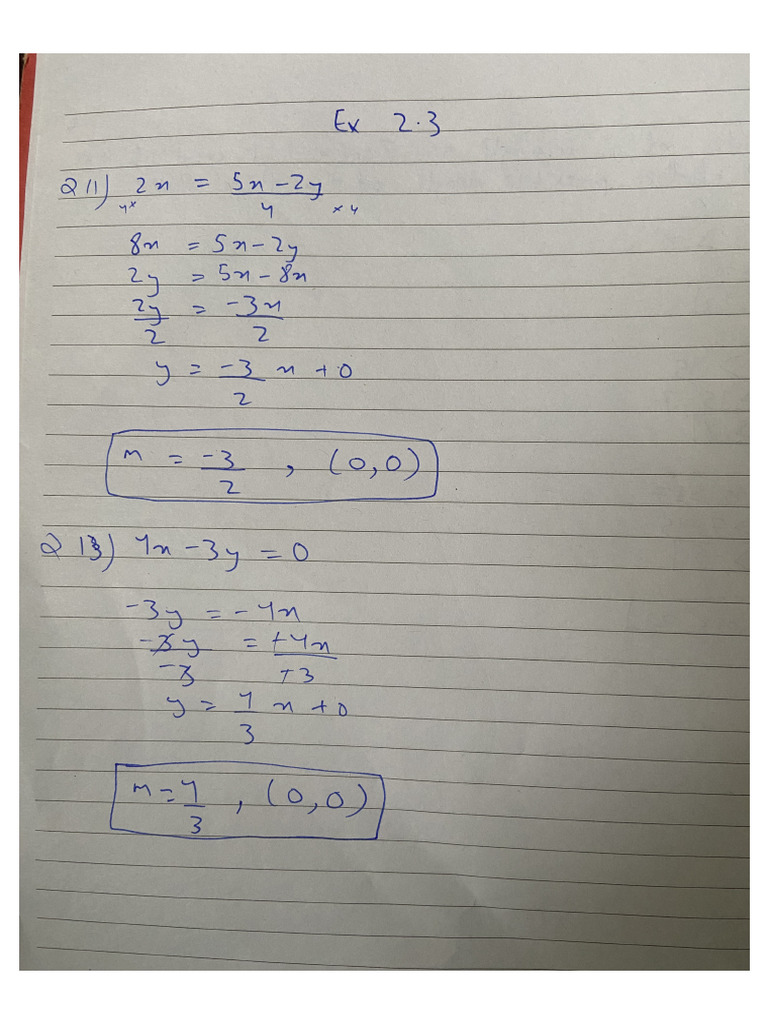 Ex 2.3
Q 11) 2x = 5x - 2y / 4
4× ×4
8x = 5x - 2y
2y = 5x - 8x
2y/2 = -3x/2
y = -3/2 x + 0
m = -3/2 , (0,0)
Q 13) 4x - 3y = 0
-3y = -4x
-3y/-3 = +4x/+3
y = 4/3 x + 0
m = 4/3 , (0,0)